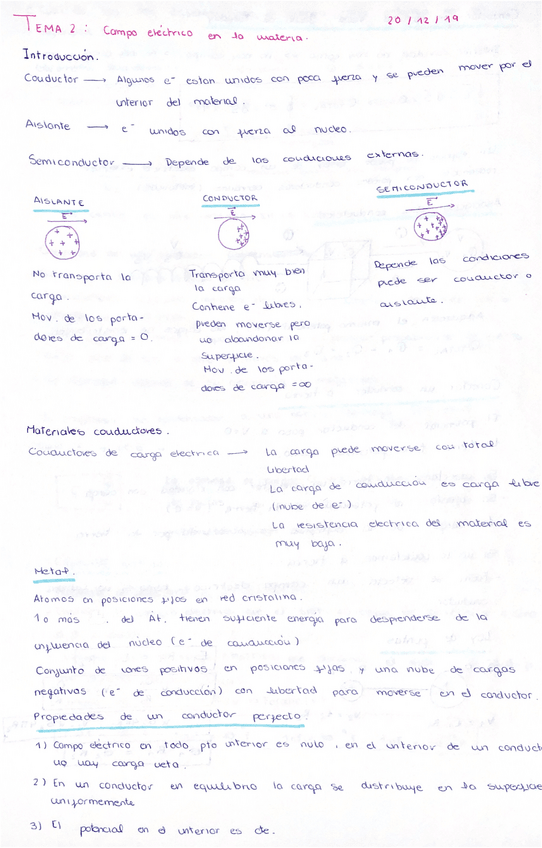 TEMA 2 : Campo eléctrico en la materia.
20 / 12 / 19
Introducción.
Conductor → Algunos e⁻ estan unidos con poca fuerza y se pueden mover por el
interior del material.
Aislante → e⁻ unidos con fuerza al nucleo.
Semiconductor → Depende de las condiciones externas.
AISLANTE
E
+ + + + +
No transporta la
carga.
Mov. de los porta-
dores de carga = 0.
CONDUCTOR
E
Transporta muy bien
la carga
Contiene e⁻ libres,
pueden moverse pero
no abandonar la
superficie.
Mov. de los porta-
dores de carga = ∞
SEMICONDUCTOR
E
Depende las condiciones
puede ser conductor o
aislante.
Materiales conductores.
Conductores de carga electrica → La carga puede moverse con total
libertad
La carga de conducción es carga libre
(nube de e⁻)
La resistencia electrica del material es
muy baja.
Metal.
Atomos en posiciones fijas en red cristalina.
1 o más , del At. tienen suficiente energía para desprenderse de la
influencia del núcleo (e⁻ de conducción)
Conjunto de iones positivos en posiciones fijas y una nube de cargas
negativas (e⁻ de conducción) con libertad para moverse en el conductor.
Propiedades de un conductor perfecto.
1) Campo eléctrico en todo pto interior es nulo, en el interior de un conduct
no hay carga neta.
2) En un conductor en equilibrio la carga se distribuye en la superficie
uniformemente
3) El potencial en el interior es cte.